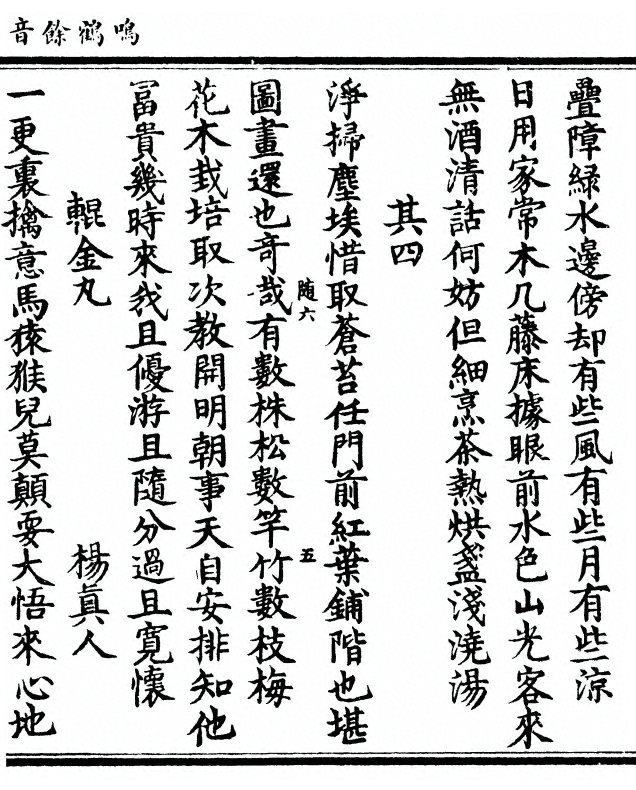 鳴鶴餘音
疊障緑水邊傍却有些風有些月有些涼
日用家常木几藤床據眼前水色山光客來
無酒清話何妨但細烹茶熱烘盞淺澆湯
其四
淨掃塵埃惜取蒼苔任門前紅葉鋪階也堪
随六 五
圖畫還也竒哉有數株松數竿竹數枝梅
花木栽培取次教開明朝事天自安排知他
冨貴幾時來我且優游且隨分過且寛懷
輥金丸 楊真人
一更裏擒意馬猿猴兒莫顛耍大悟來心地